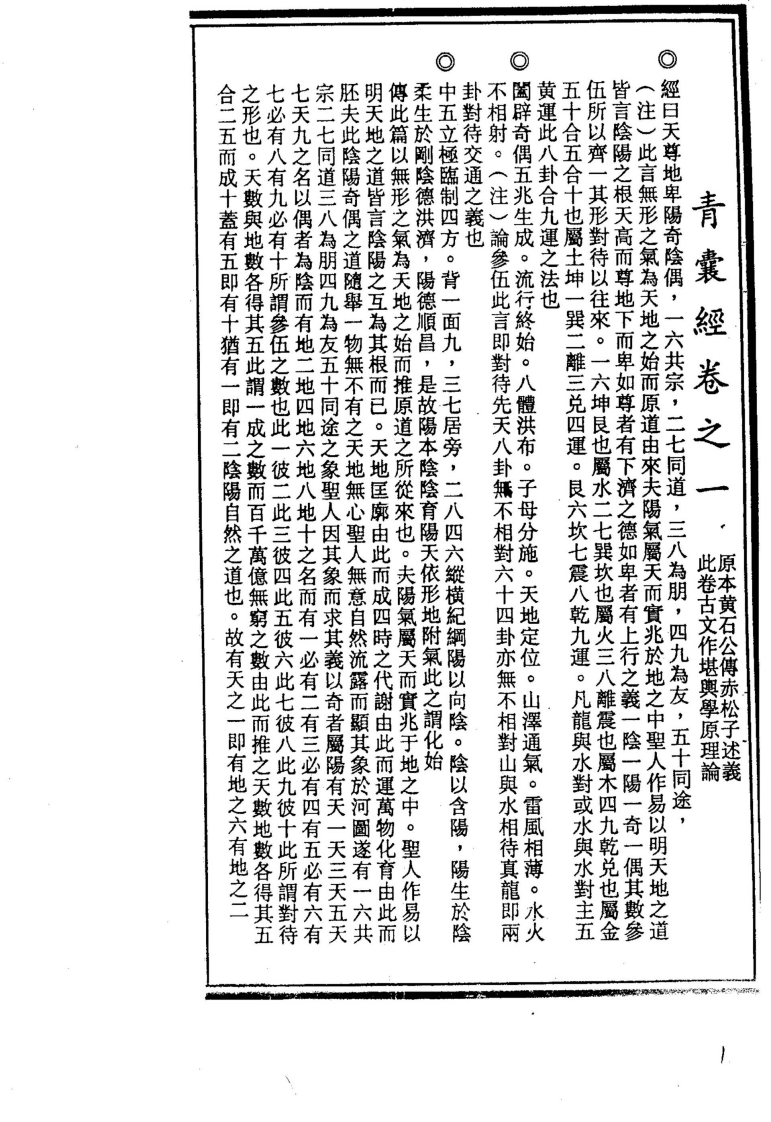 青囊經卷之一
原本黃石公傳赤松子述義
此卷古文作堪輿學原理論
◎經曰天尊地卑陽奇陰偶，一六共宗，二七同道，三八為朋，四九為友，五十同途，
（注）此言無形之氣為天地之始而原道由來夫陽氣屬天而實兆於地之中聖人作易以明天地之道
皆言陰陽之根天高而尊地下而卑如尊者有下濟之德如卑者有上行之義一陰一陽一奇一偶其數參
伍所以齊一其形對待以往來。一六坤艮也屬水二七巽坎也屬火三八離震也屬木四九乾兑也屬金
五十合五合十也屬土坤一巽二離三兑四運。艮六坎七震八乾九運。凡龍與水對或水與水對主五
黃運此八卦合九運之法也
◎闔辟奇偶五兆生成。流行終始。八體洪布。子母分施。天地定位。山澤通氣。雷風相薄。水火
不相射。（注）論參伍此言即對待先天八卦無不相對六十四卦亦無不相對山與水相待真龍即兩
卦對待交通之義也
◎中五立極臨制四方。背一面九，三七居旁，二八四六縱橫紀綱陽以向陰。陰以含陽，陽生於陰
柔生於剛陰德洪濟，陽德順昌，是故陽本陰陰育陽天依形地附氣此之謂化始
傳此篇以無形之氣為天地之始而推原道之所從來也。夫陽氣屬天而實兆于地之中。聖人作易以
明天地之道皆言陰陽之互為其根而已。天地匡廓由此而成四時之代謝由此而運萬物化育由此而
胚夫此陰陽奇偶之道隨舉一物無不有之天地無心聖人無意自然流露而顯其象於河圖遂有一六共
宗二七同道三八為朋四九為友五十同途之象聖人因其象而求其義以奇者屬陽有天一天三天五天
七天九之名以偶者為陰而有地二地四地六地八地十之名而有一必有二有三必有四有五必有六有
七必有八有九必有十所謂參伍之數也此一彼二此三彼四此五彼六此七彼八此九彼十此所謂對待
之形也。天數與地數各得其五此謂一成之數而百千萬億無窮之數由此而推之天數地數各得其五
合二五而成十蓋有五即有十猶有一即有二陰陽自然之道也。故有天之一即有地之六有地之二
1